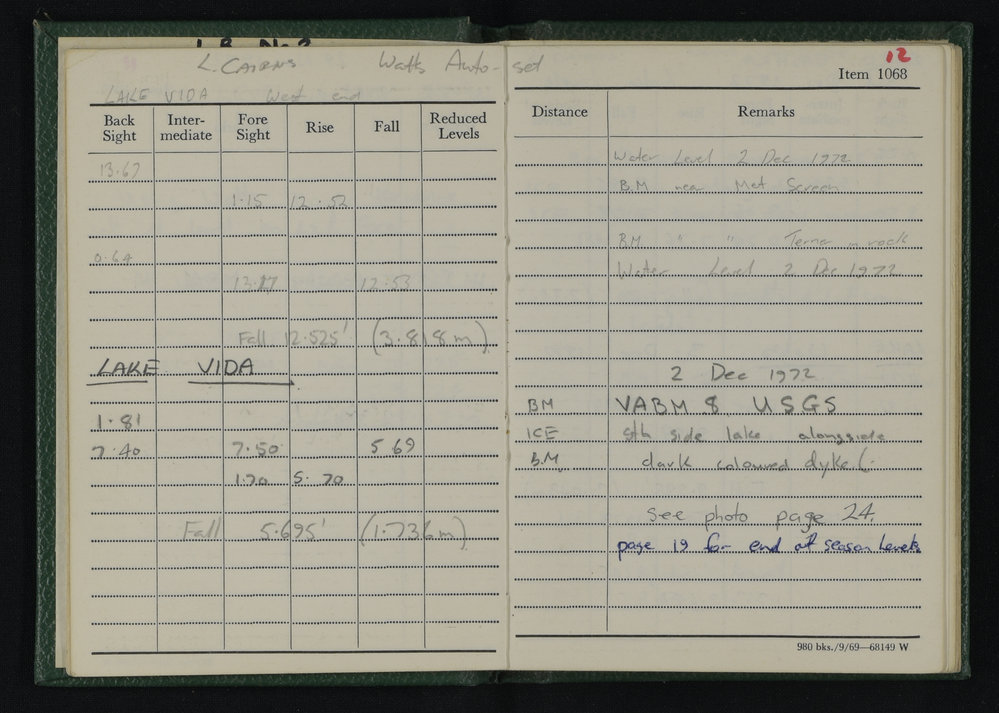 L. CAIRNS Watts Auto-set
LAKE VIDA West end
Back Sight Inter-mediate Fore Sight Rise Fall Reduced Levels
13.67
1.15 12.52
0.64
13.17 12.53
Fall 12.525' (3.818m)
LAKE VIDA
1.81
7.40 7.50 5 69
1.70 5.70
Fall 5.695' (1.736m)
12
Item 1068
Distance Remarks
Water Level 2 Dec 1972
B.M near Met Screen
BM " " Terner in rock
Water Level 2 Dec 1972
2 Dec 1972
BM VABM 8 USGS
ICE sth side lake alongside
B.M. dark coloured dyke (.
see photo page 24.
page 19 for end of season levels
980 bks./9/69—68149 W